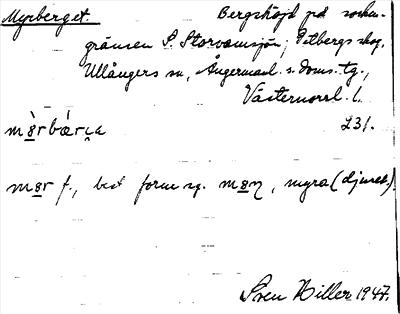 Myrberget. Bergshöjd på socken-
gränsen S. Storvamsjön; Vitbergs skog,
Ullångers sn, Ångermanl. s. doms. tg.,
Västernorrl. l.
231.
m f., best form sg. , myra (djuret).
Sven Hiller 1947.